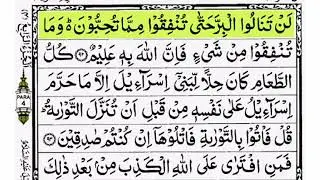 لَنْ تَنَالُوا الْبِرَّ حَتّٰى تُنْفِقُوْا مِمَّا تُحِبُّوْنَ ؕ وَمَا
تُنْفِقُوْا مِنْ شَیْءٍ فَاِنَّ اللّٰهَ بِهٖ عَلِیْمٌ ﴿۹۲﴾ كُلُّ
الطَّعَامِ كَانَ حِلًّا لِّبَنِیْۤ اِسْرَآءِیْلَ اِلَّا مَا حَرَّمَ
اِسْرَآءِیْلُ عَلٰى نَفْسِهٖ مِنْ قَبْلِ اَنْ تُنَزَّلَ التَّوْرٰىةُ ؕ
قُلْ فَاْتُوْا بِالتَّوْرٰىةِ فَاتْلُوْهَاۤ اِنْ كُنْتُمْ صٰدِقِیْنَ ﴿۹۳﴾
فَمَنِ افْتَرٰى عَلَى اللّٰهِ الْكَذِبَ مِنْۢ بَعْدِ ذٰلِكَ
PARA
4